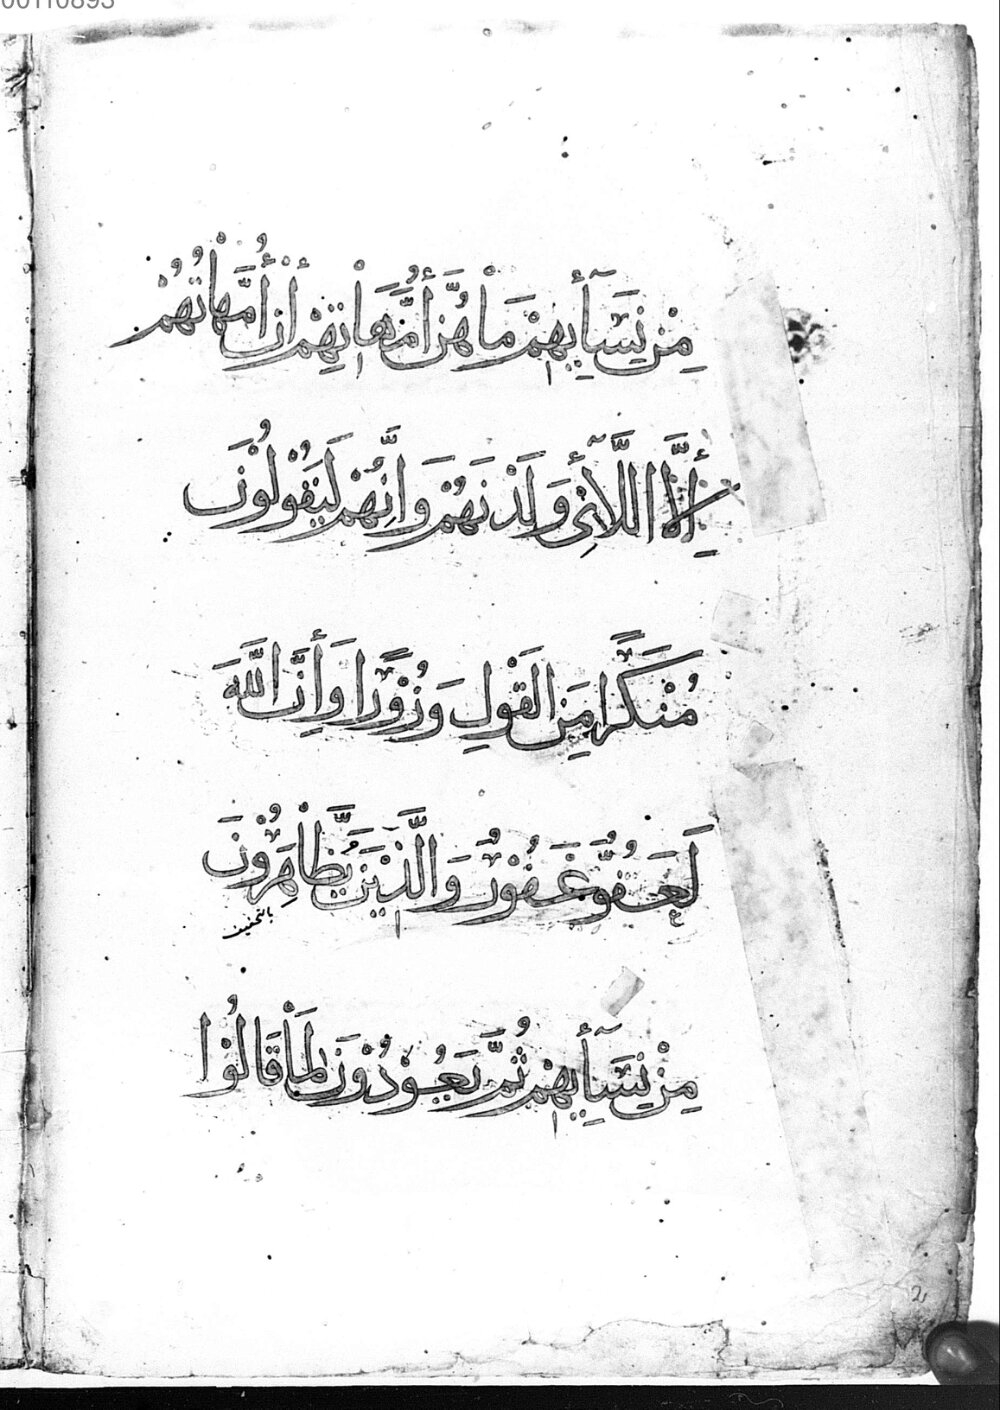 00110893
مِنْ نِسَآئِهِمْ مَا هُنَّ أُمَّهَاتِهِمْ إِنْ أُمَّهَاتُهُمْ
إِلَّا اللَّآئِي وَلَدْنَهُمْ وَإِنَّهُمْ لَيَقُوْلُوْنَ
مُنْكَرًا مِنَ الْقَوْلِ وَزُوْرًا وَإِنَّ اللَّهَ
لَعَفُوٌّ غَفُوْرٌ وَالَّذِيْنَ يَظَّاهَرُوْنَ
بالتخفيف
مِنْ نِسَآئِهِمْ ثُمَّ يَعُوْدُوْنَ لِمَا قَالُوْا
2